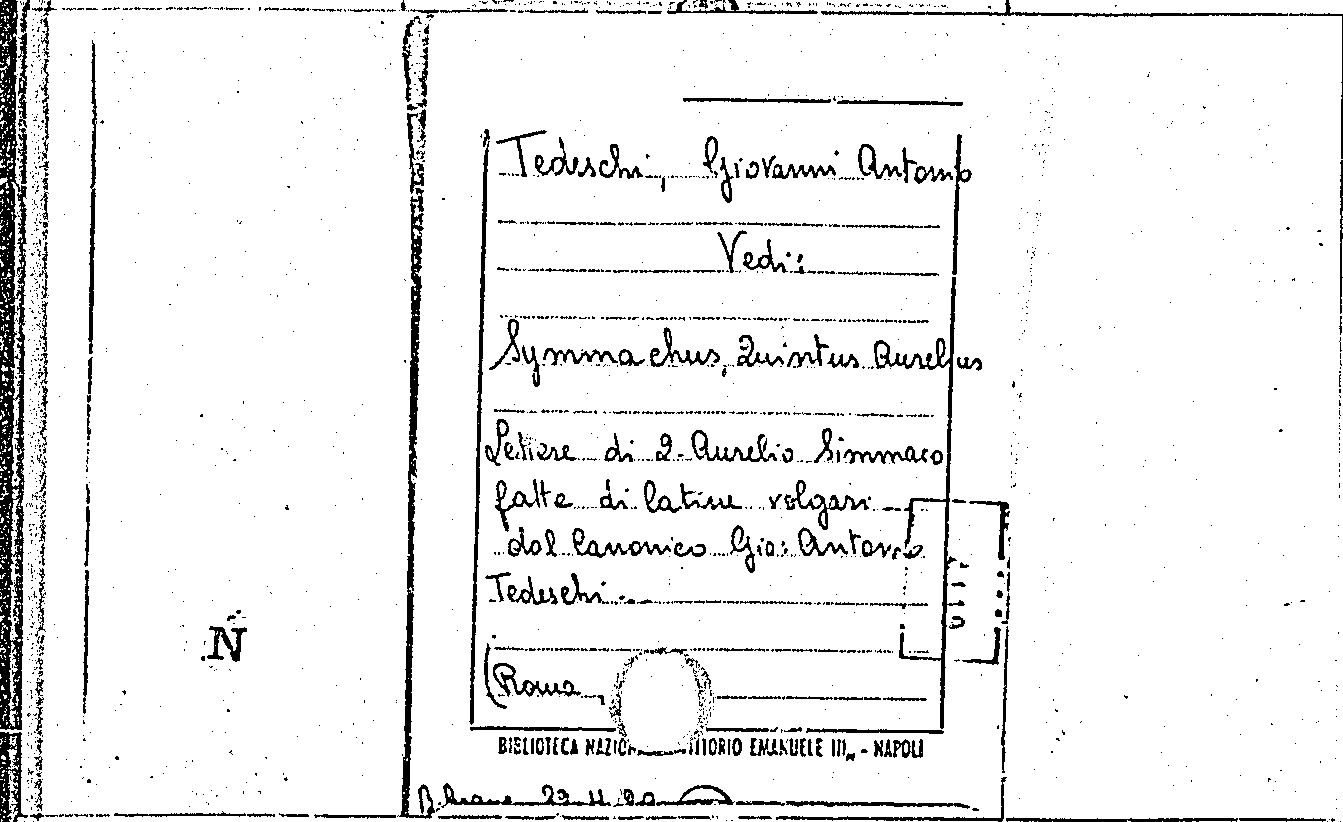 Tedeschi, Giovanni Antonio
Vedi:
Symmachus, Quintus Aurelius
Lettere di Q. Aurelio Simmaco
fatte di latine volgari ...
dal Canonico Gio: Antonio
Tedeschi ...
(Roma,
N
BIBLIOTECA VITTORIO EMANUELE III„ - NAPOLI